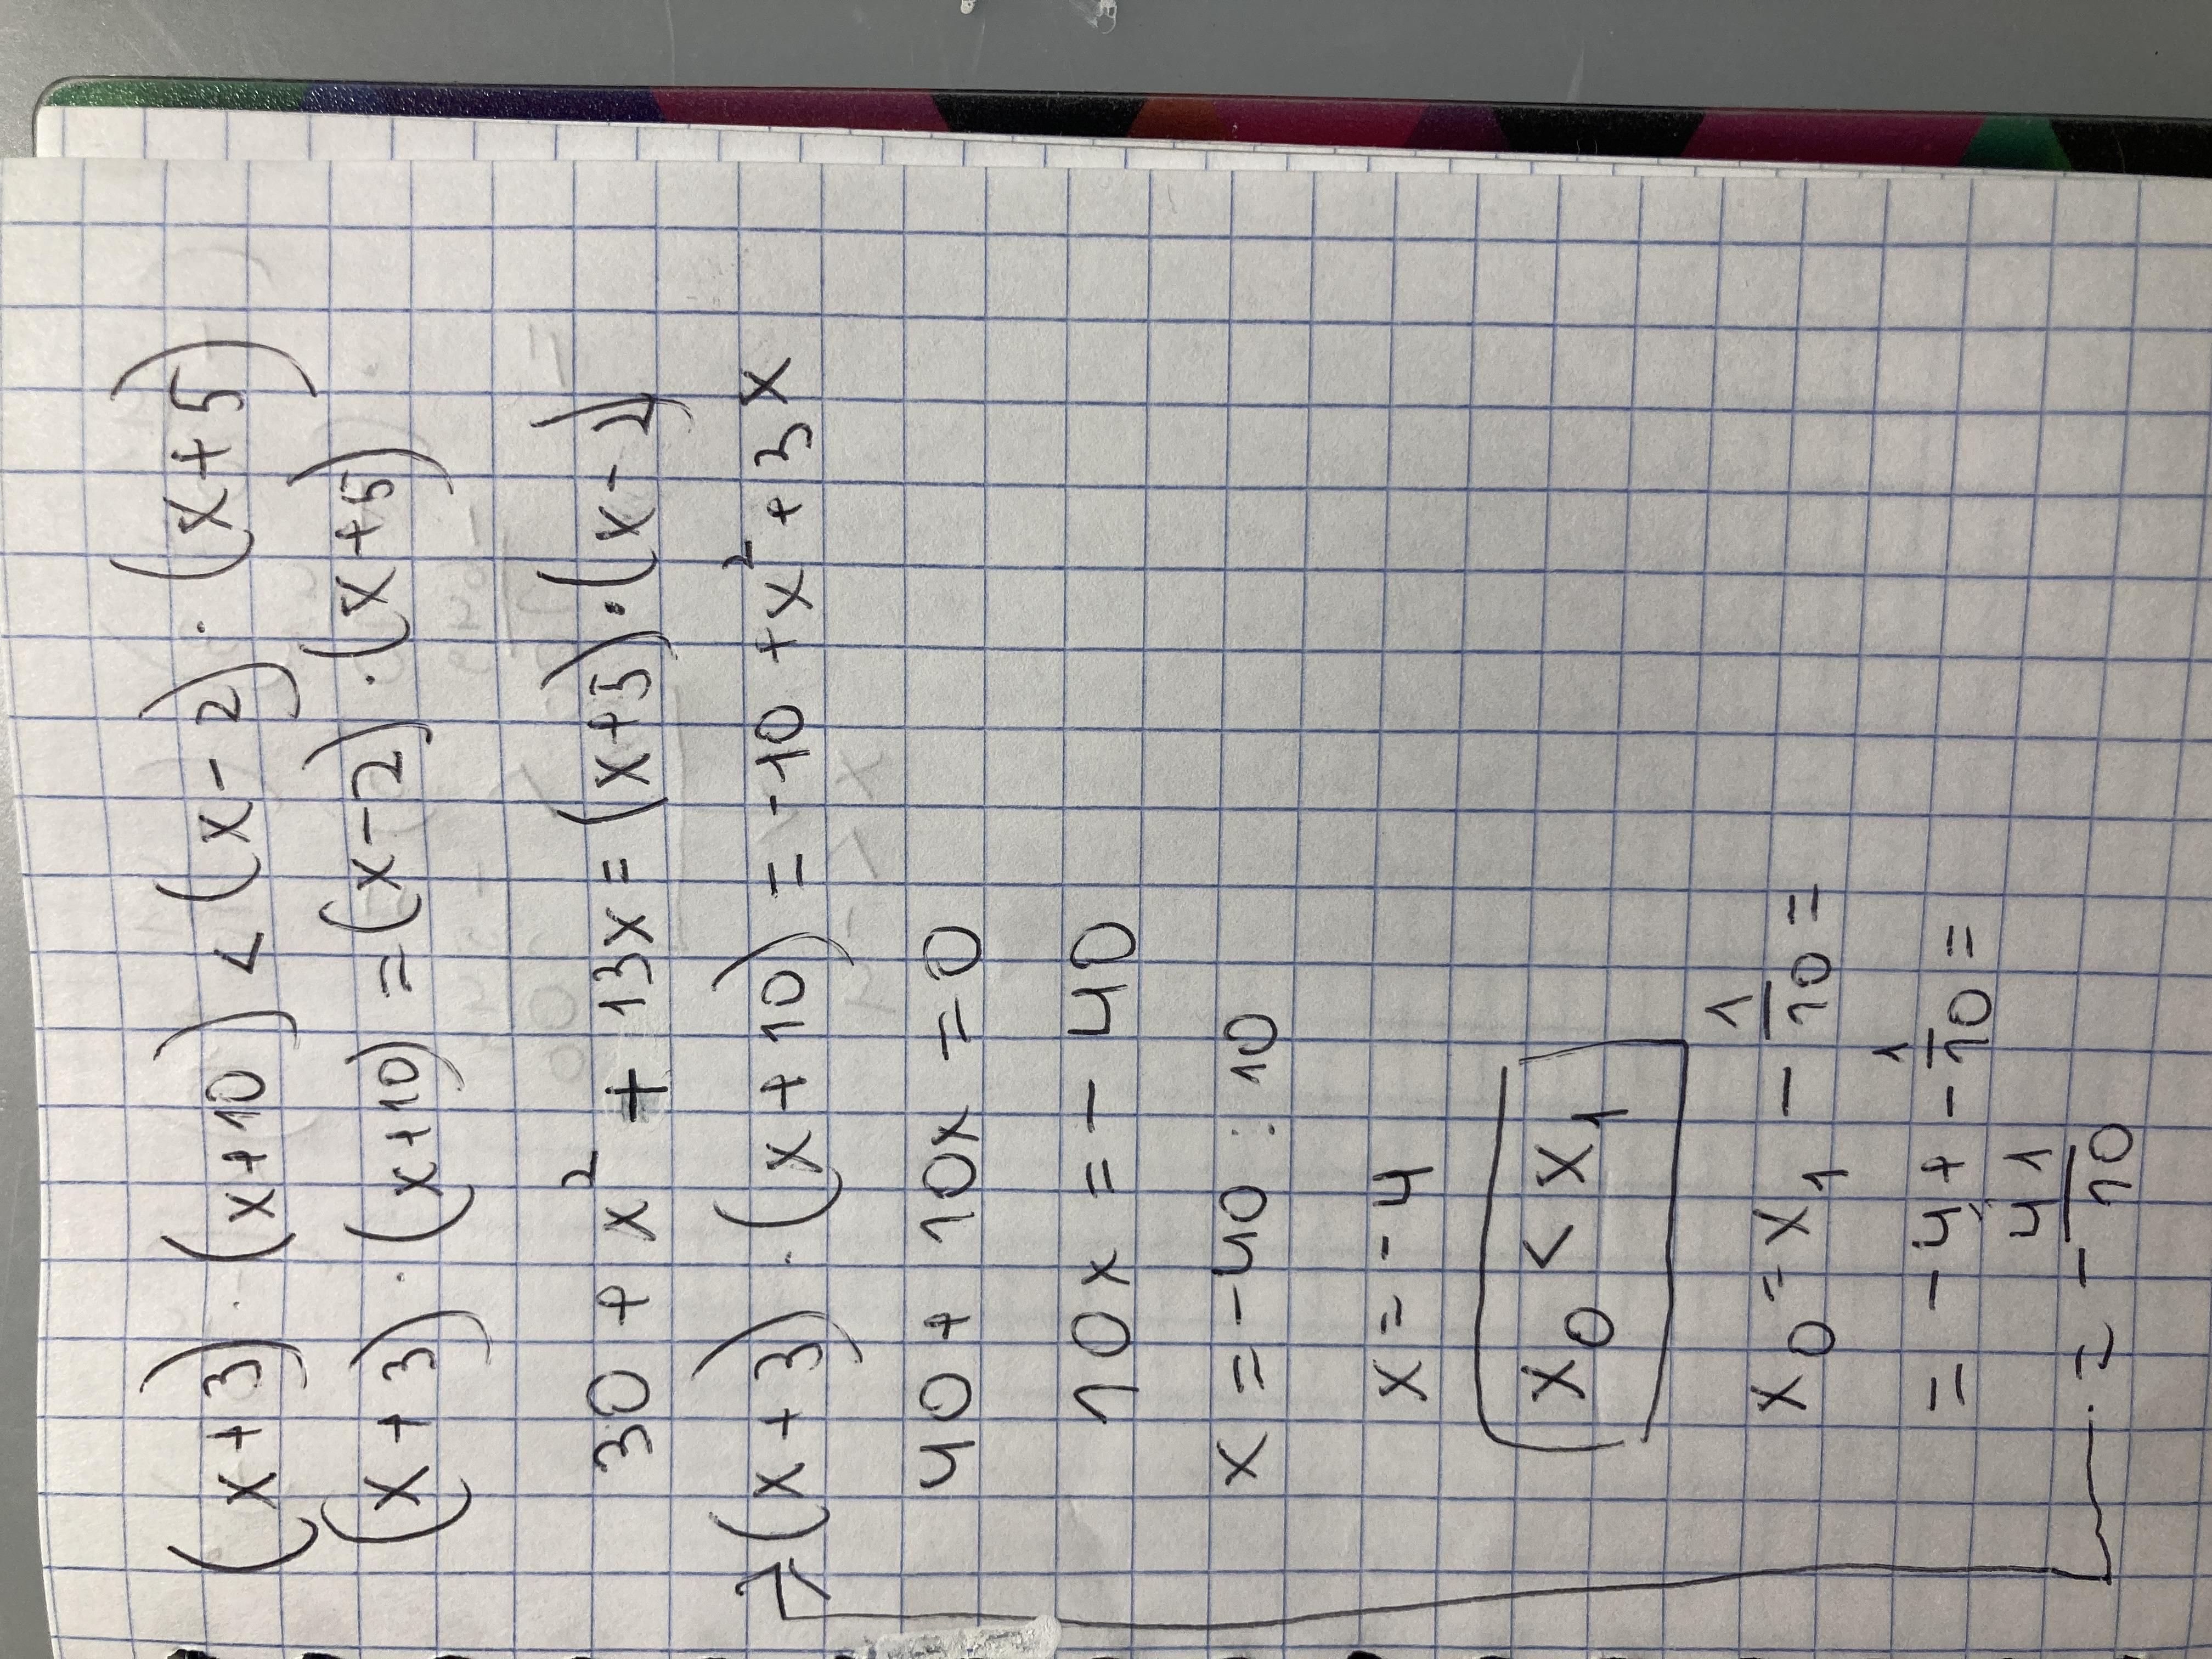 (x+3) · (x+10) < (x-2) · (x+5)
(x+3) · (x+10) = (x-2) · (x+5)
30 + x² + 13x = (x+5) · (x-2)
(x+3) · (x+10) = -10 + x² + 3x
40 + 10x = 0
10x = -40
x = -40 : 10
x = -4
x₀ < x₁
x₀ = x₁ - 1/10 =
= -4 + -1/10 =
= -41/10